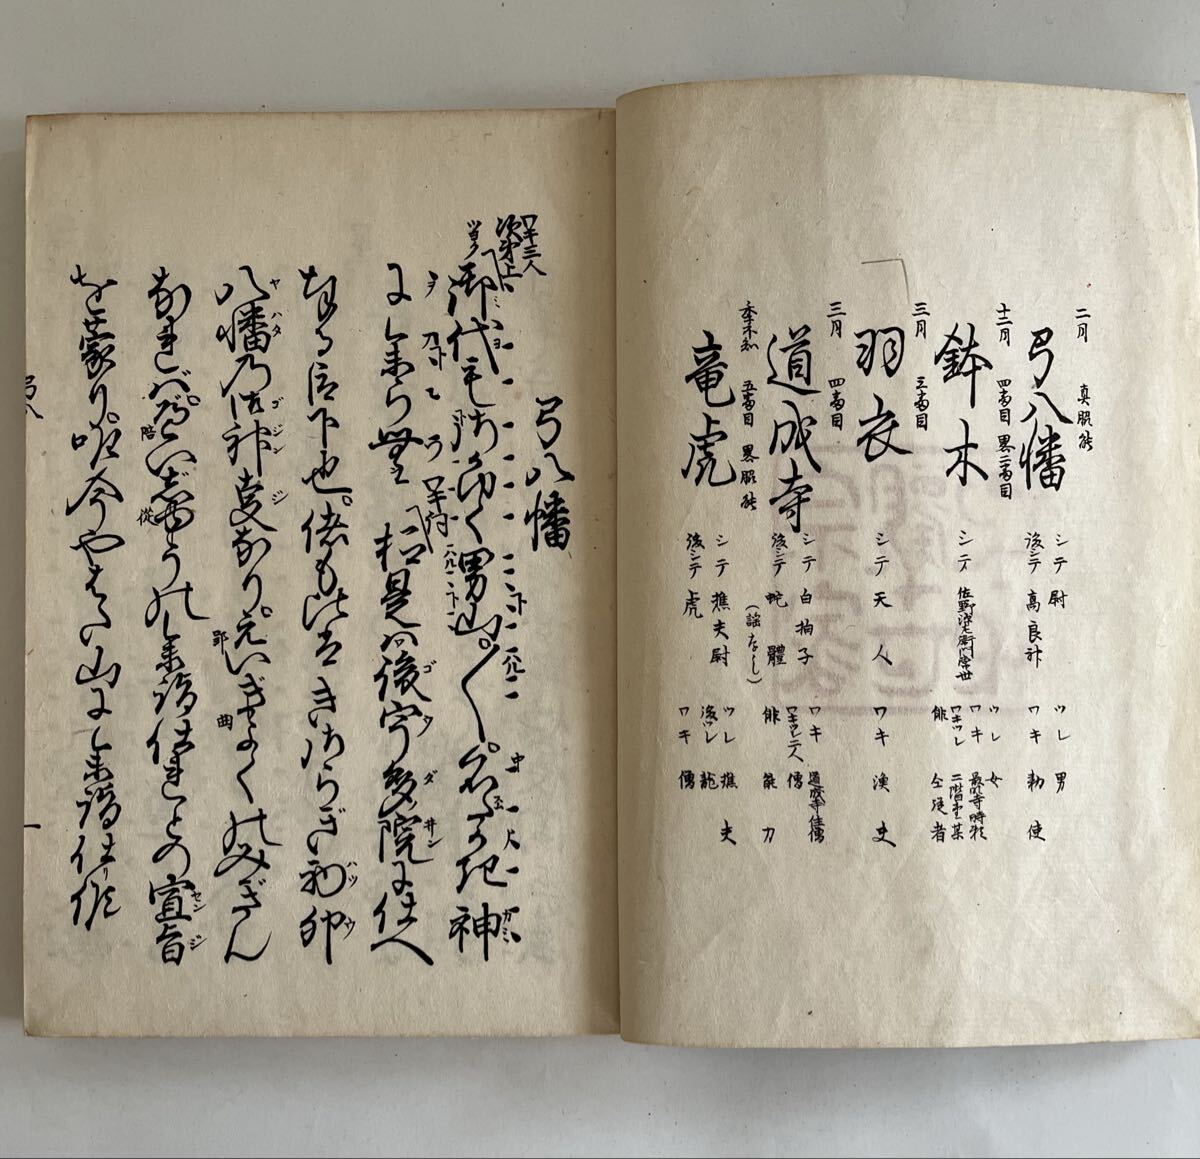 二月 真脇能
弓八幡
シテ 尉
後シテ 高良神
ツレ 男
ワキ 勅使
十二月 四番目 略二番目
鉢木
シテ 佐野源左衛門常世
ツレ 女
ワキ 最明寺時頼
ワキツレ 二階堂某
三月 三番目
羽衣
シテ 天人
ワキ 漁夫
三月 四番目
道成寺
シテ 白拍子
後シテ 蛇體
(謡なし)
ワキ 道成寺住僧
ワキツレ二人 僧
能力
季不知 五番目 略脇能
竜虎
シテ 樵夫尉
後シテ 虎
ツレ 樵夫
後ツレ 龍
ワキ 僧
弓八幡
ワキ三人
次第上
御代も栄行く男山。〱。名高き神
に参らむ
抑是は後宇多院に仕へ
奉る臣下也。偖も此度きさらぎ初卯
八幡の御神事なり。えいぎよくのみぎん
なればばいじゆうの参詣仕れとの宣旨
を蒙り。唯今やはた山に参詣仕り候
弓八
一